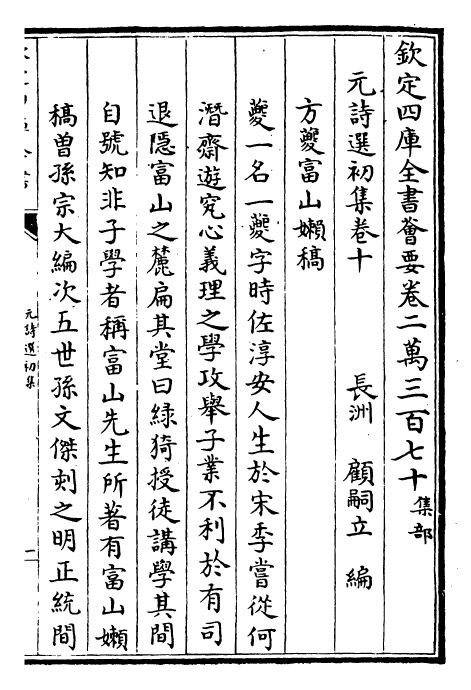 欽定四庫全書薈要卷二萬三百七十集部
元詩選初集卷十
長洲 顧嗣立 編
方夔富山嬾稿
夔一名一夔字時佐淳安人生於宋季嘗從何
潛齋遊究心義理之學攻舉子業不利於有司
退隱富山之麓扁其堂曰綠猗授徒講學其間
自號知非子學者稱富山先生所著有富山嬾
稿曾孫宗大編次五世孫文傑刻之明正統間
元詩選初集